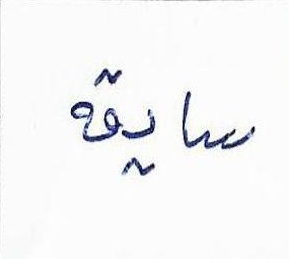 سايقه